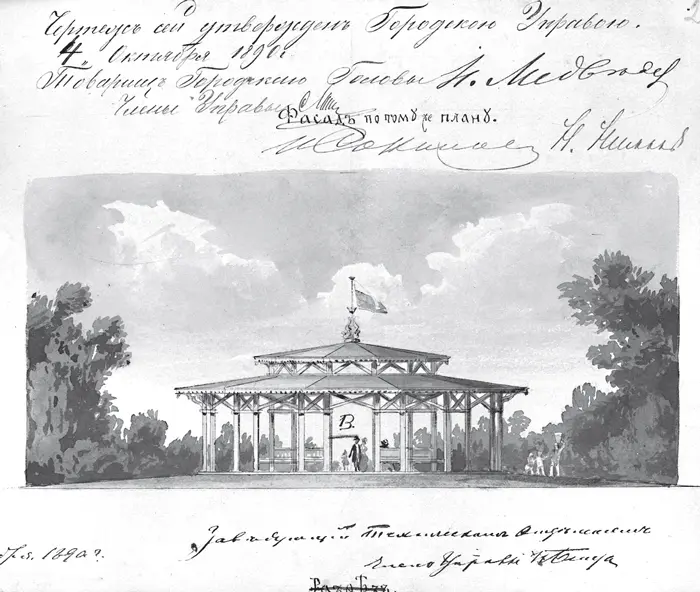 Чертежъ сей утвержденъ Городскою Управою.
4„ Октября 1890 г.
Товарищъ Городскаго Головы Н. Медвѣдев
Члены Управы
Фасадъ по тому же плану.
Н.
В.
Завѣдующій Техническимъ Отдѣленіемъ
бря 1890 г.
Членъ Управы
Разѣзъ.